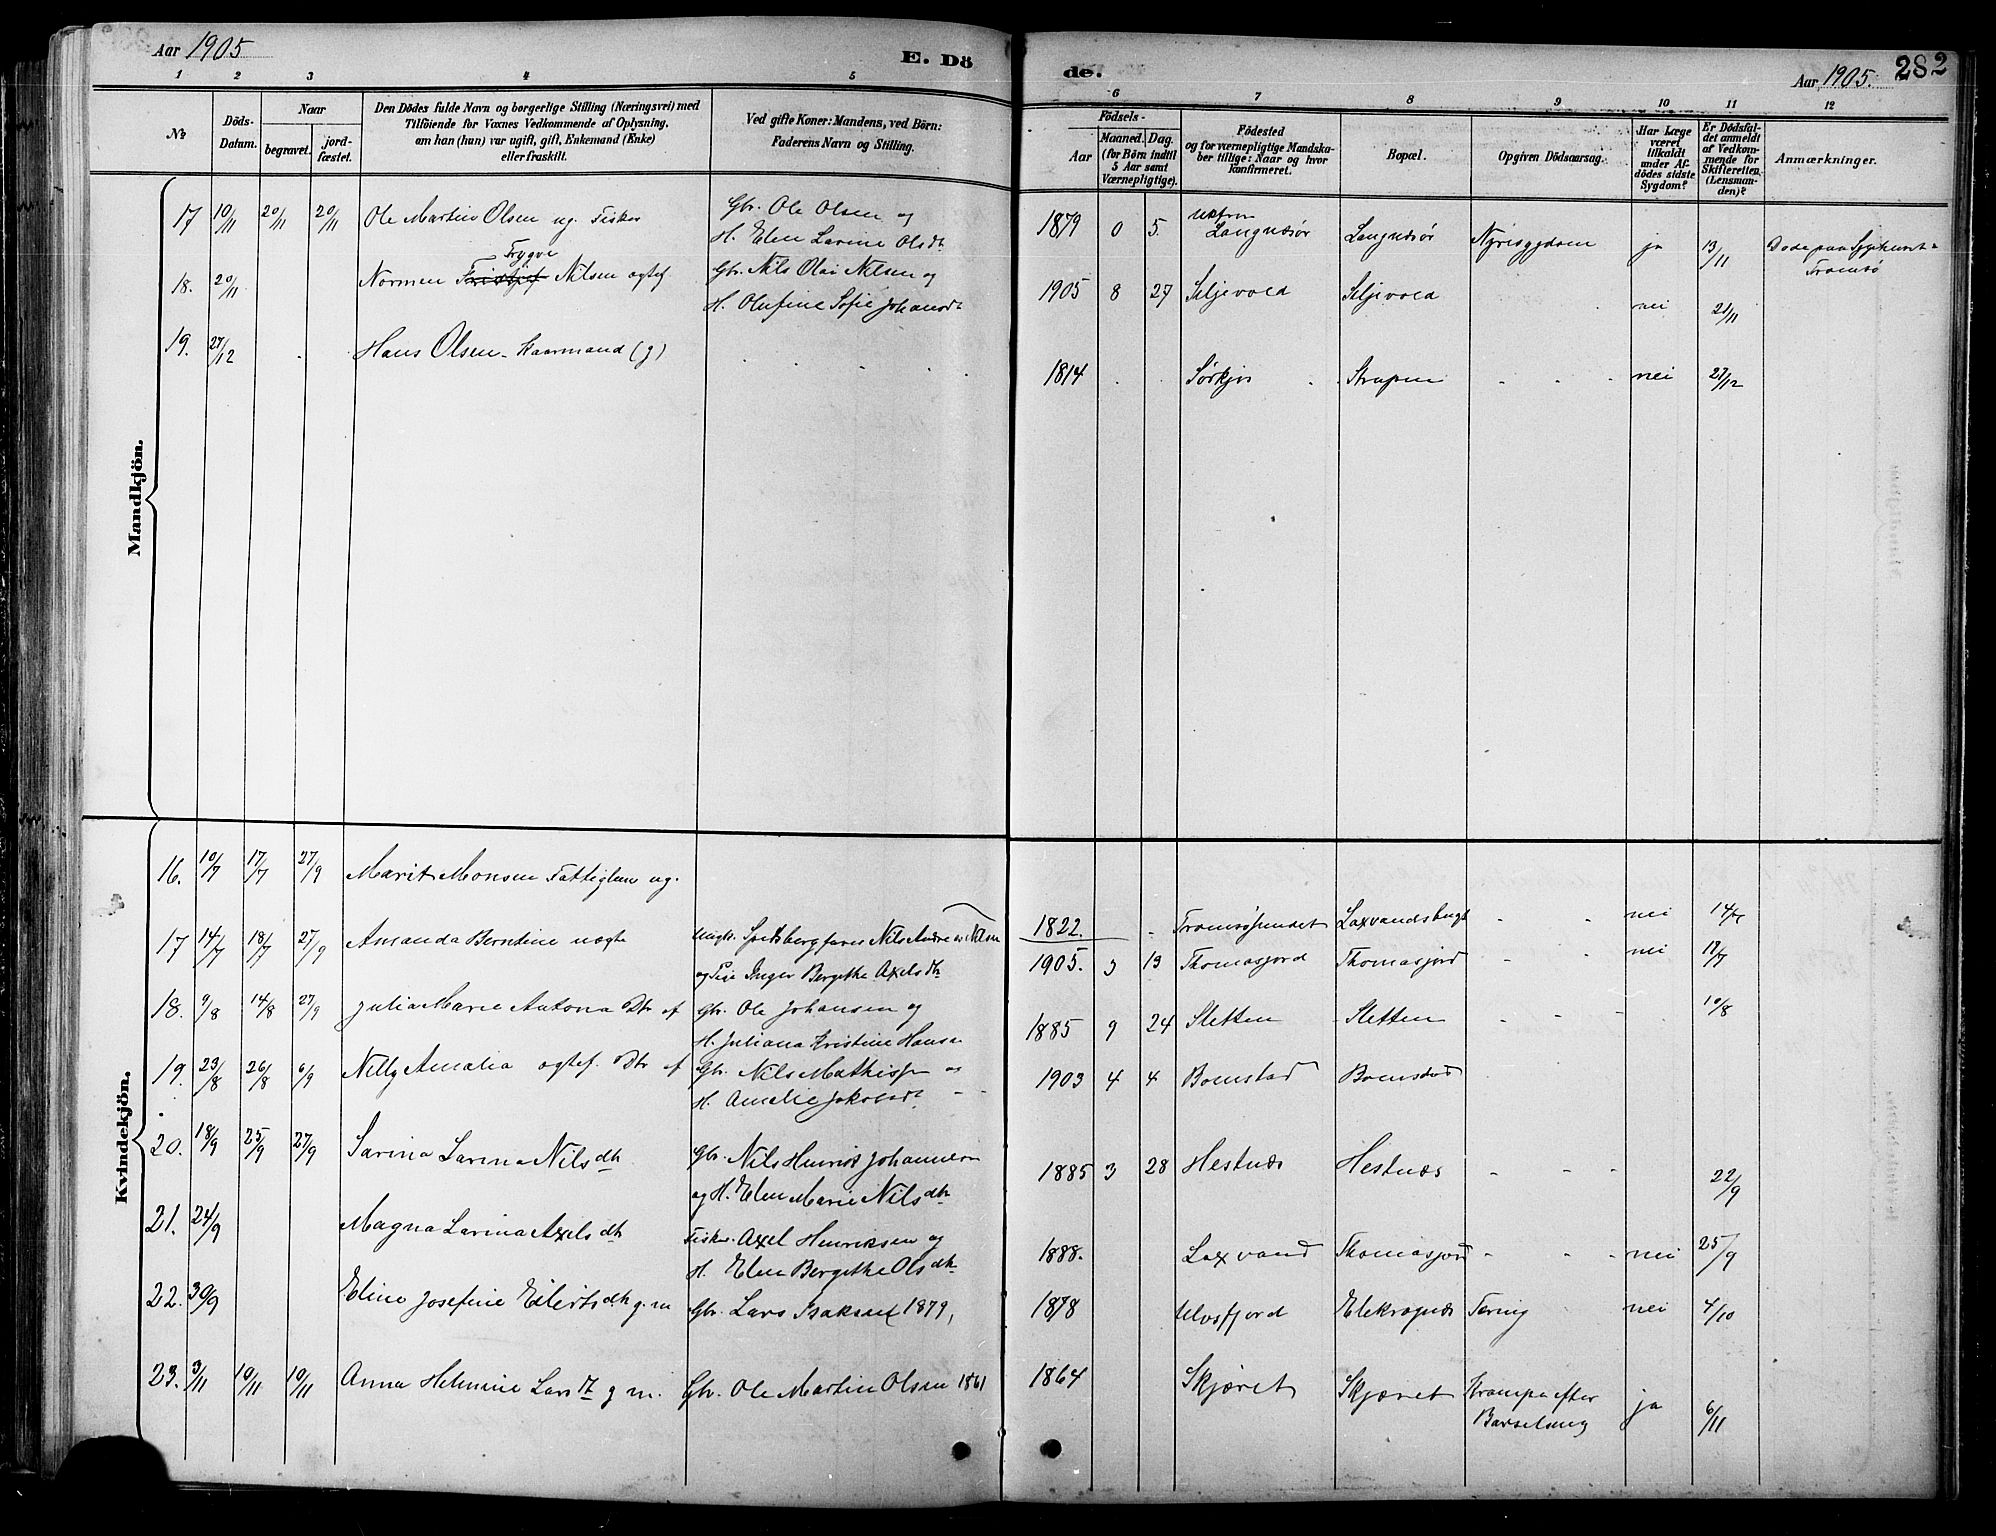 Aar 1905
E. Dö
de.
Aar 1905.
282
1 2 3 4 5 6 7 8 9 10 11 12
№
Döds-
Datum.
Naar
begravet.
jord-
fæstet.
Den Dödes fulde Navn og borgerlige Stilling (Næringsvei) med
Tilföiende for Voxnes Vedkommende af Oplysning,
om han (hun) var ugift, gift, Enkemand (Enke)
eller fraskilt.
Ved gifte Koner: Mandens, ved Börn:
Faderens Navn og Stilling.
Födsels-
Aar
Maaned.
Dag.
(for Börn indtil
5 Aar samt
Værnepligtige).
Födested
og for værnepligtige Mandska-
ber tillige: Naar og hvor
konfirmeret.
Bopæl.
Opgiven Dödsaarsag.
Har Læge
været
tilkaldt
under Af-
dödes sidste
Sygdom?
Er Dödsfal-
det anmeldt
af Vedkom-
mende for
Skifteretten
(Lensman-
den)?
Anmærkninger.
Mandkjön.
17 10/11 20/11 20/11 Ole Martin Olsen ug. Fisker Gbr. Ole Olsen og
H. Elen Larine Olsdt 1879 0 5. Langnæsør Langnæsør Nyresygdom ja 13/11 Døde paa Sygehuset
Tromsø
Trygve
18. 20/11 Normen Nilsen ægtef Gbr. Nils Olai Nilsen og
H. Olufine Sofie Johansdt 1905 8 27 Seljevold Seljevold nei 21/11
19. 27/12 Hans Olsen - Kaarmand (g) 1814 Sørkjos Strupen nei 27/12
Kvindekjön.
16. 10/7 17/7 27/9 Marit Monsen Fattiglem ug. 1822. Tromsøsundet Laxvandsbugt nei 14/7
17 14/7 18/7 27/9 Amanda Berntine uægte Ungk. Spetsbergfarer Nils Andreas Nilsen
og Pige Inger Bergithe Axelsdtr 1905. 5 13 Thomasjord Thomasjord nei 18/7
18. 9/8 14/8 27/9 Julia Marie Antona Dtr af Gbr. Ole Johansen og
H. Juliana Kristine Hansen 1885 9 24 Sletten Sletten 10/8
19. 23/8 26/8 6/9 Nelly Amalia ægtef. Dtr af Gbr. Nils Mathissen og
H. Amalie Jakobsdt 1903 4 4 Bomstad Bomstad
20. 18/9 25/9 27/9 Sarina Larina Nilsdtr Gbr. Nils Henrik Johannesen
og H. Elen Marie Nilsdtr 1885 3 28 Hestnæs Hestnæs 22/9
21. 24/9 Magna Larina Axelsdtr Fisker. Axel Henriksen og
H. Elen Bergithe Olsdtr 1888. Laxvand Thomasjord nei 25/9
22. 30/9 Eline Josefine Eilertsdtr g. m Gbr. Lars Isaksen 1879, 1878 Ulvsfjord Elekrognæs Tæring nei 4/10
23. 3/11 10/11 10/11 Anna Helmine Larsdt g m. Gbr. Ole Martin Olsen 1861 1864 Skjæret Skjæret Krampe efter
Barselseng ja 6/11